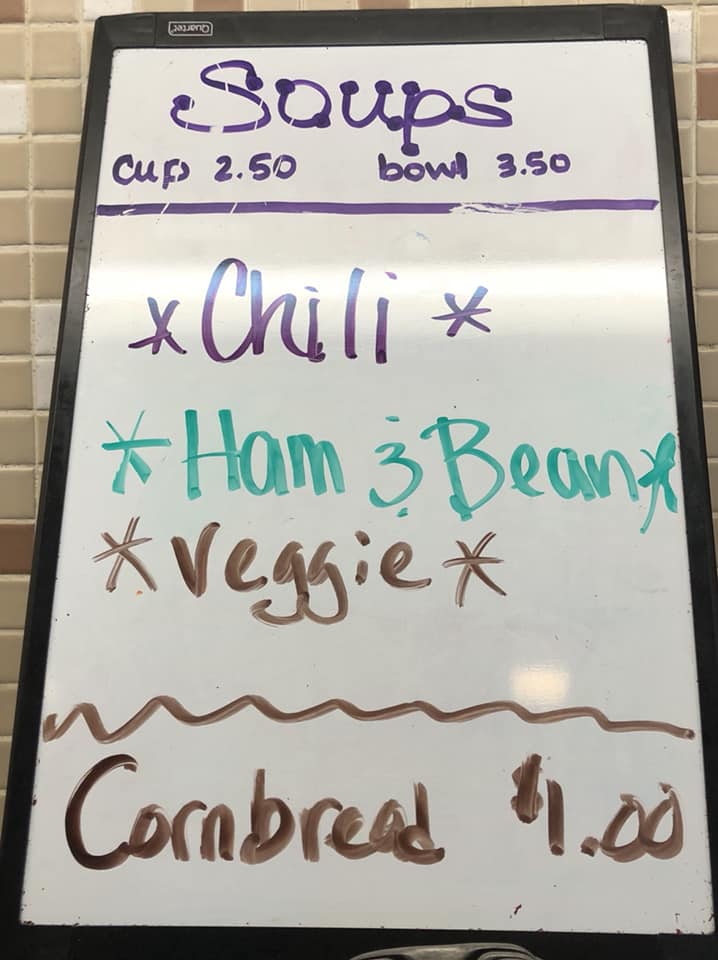 Quartet
Soups
Cup 2.50 bowl 3.50
*Chili *
*Ham & Bean*
*Veggie*
Cornbread $1.00